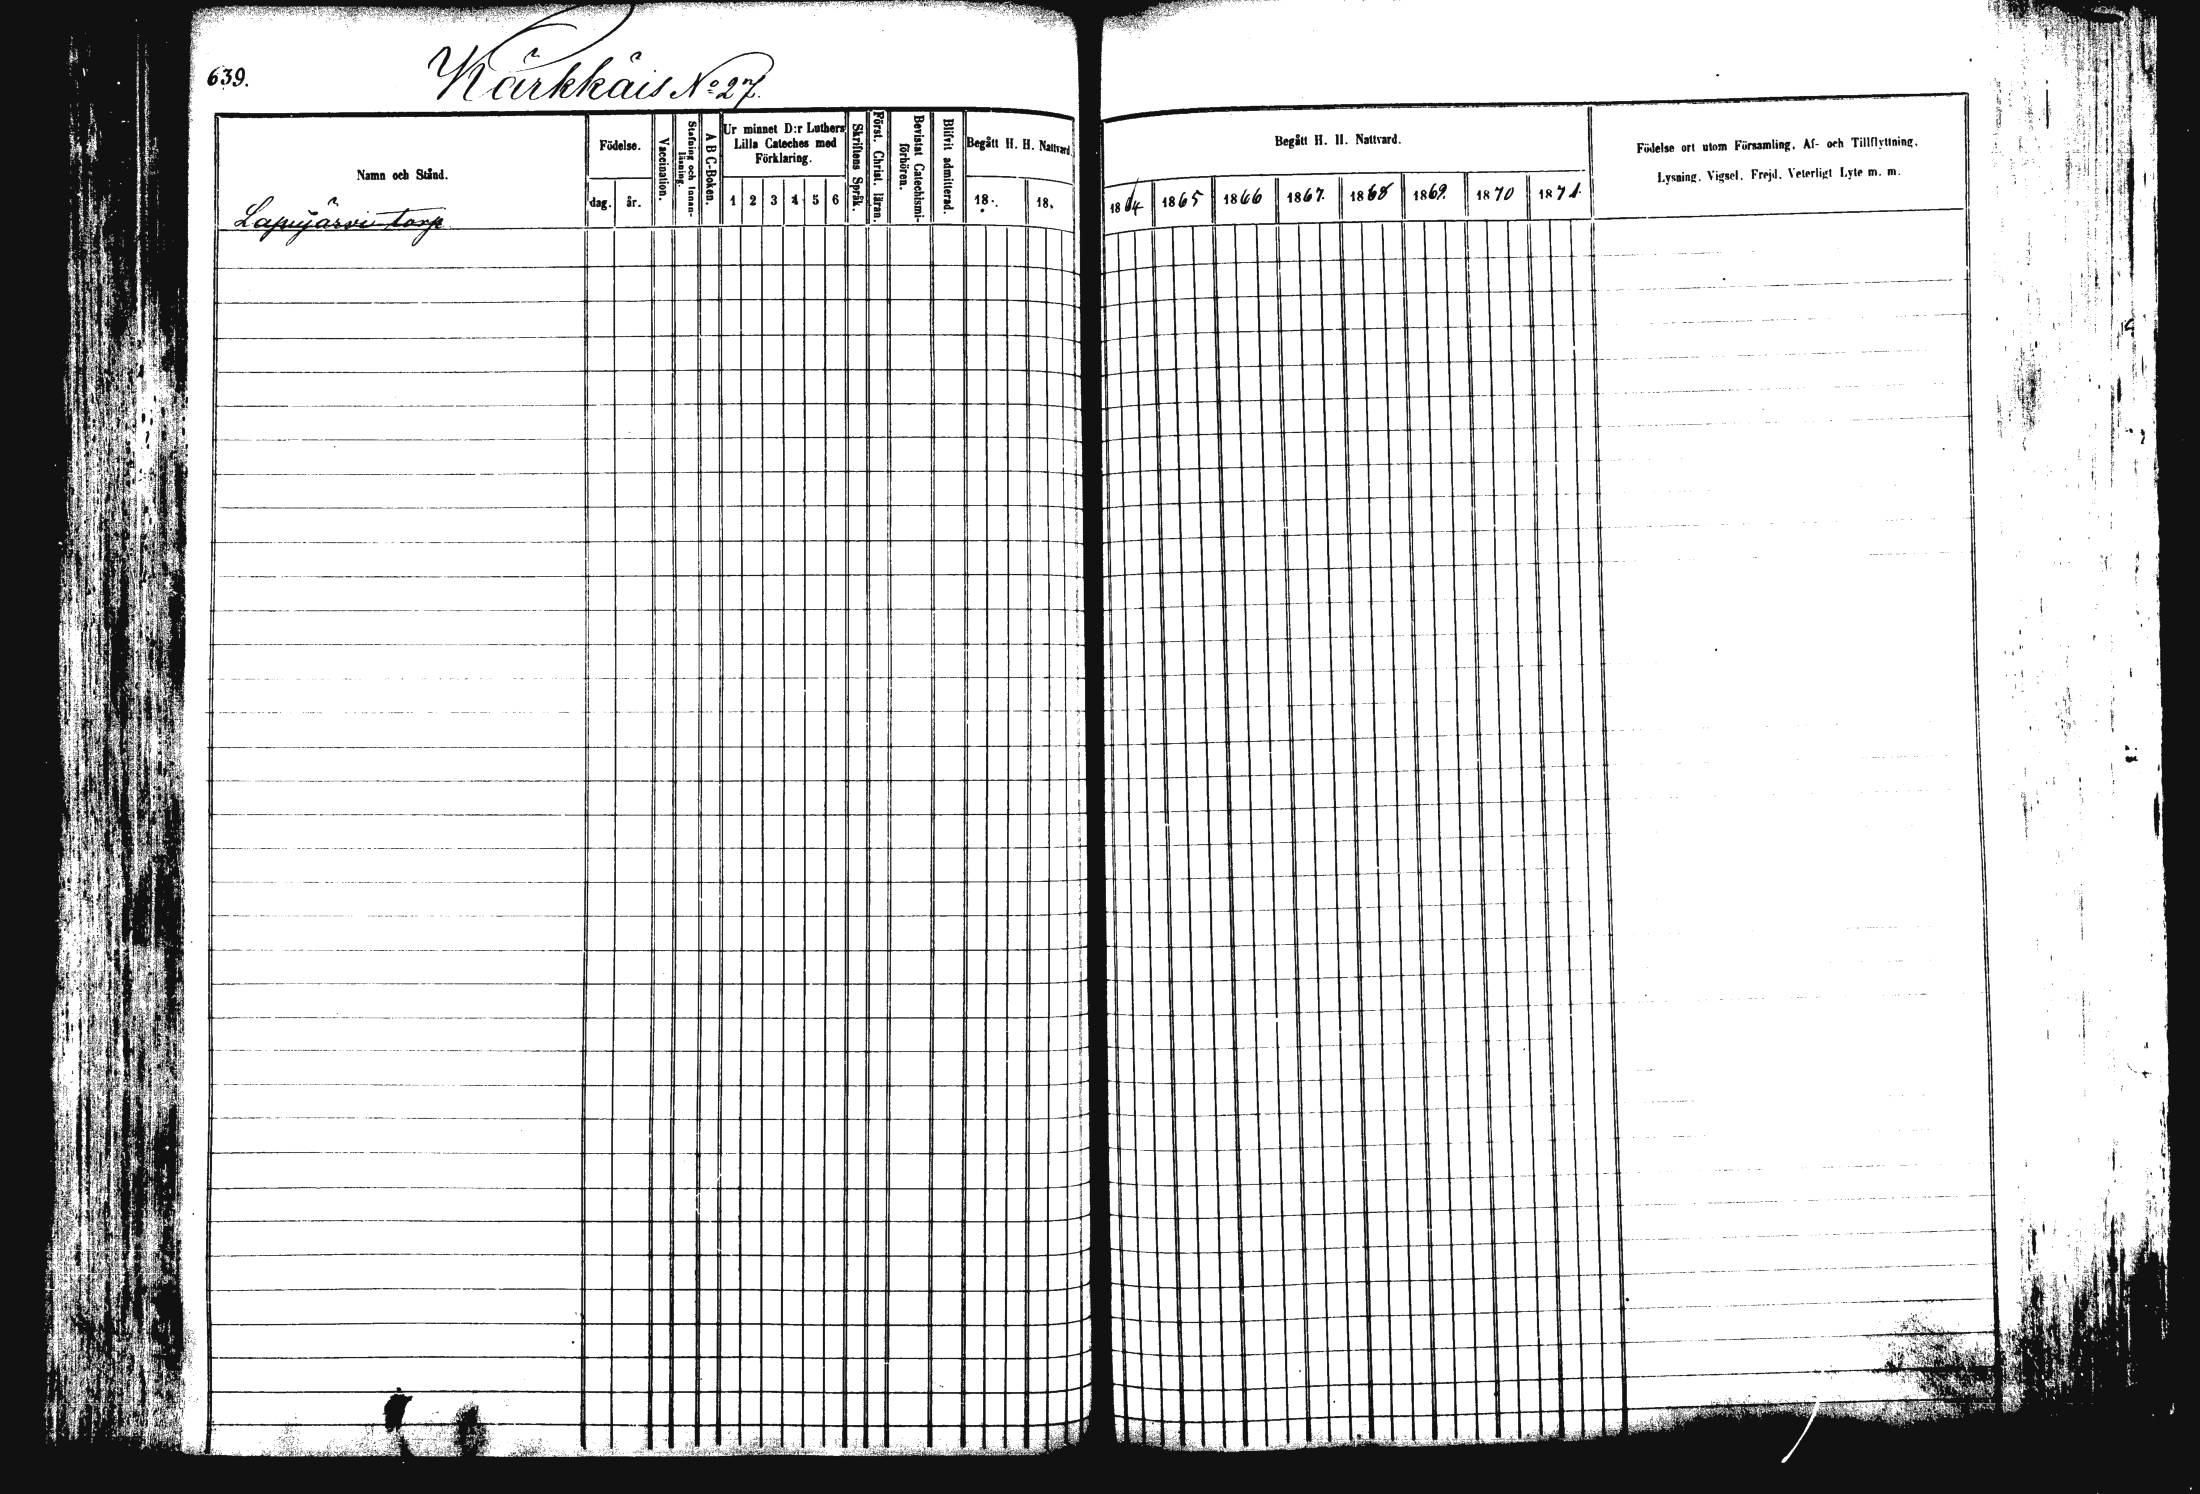 639.
Kärkkäis No 27.
Namn och Stånd.
Födelse.
dag.
år.
Vaccination.
Stafning och Innan-läsning.
A B C-Boken.
Ur minnet D:r Luthers Lilla Cateches med Förklaring.
1 2 3 4 5 6
Skriftens Språk.
Först. Christ. läran.
Bevistat Catechismi-förhören.
Blifvit admitterad.
Begått H. H. Nattvard.
18 . 18 .
Begått H. H. Nattvard.
1864 1865 1866 1867. 1868 1869. 1870 1871.
Födelse ort utom Församling, Af- och Tillflyttning,
Lysning, Vigsel, Frejd, Veterligt Lyte m. m.
torp